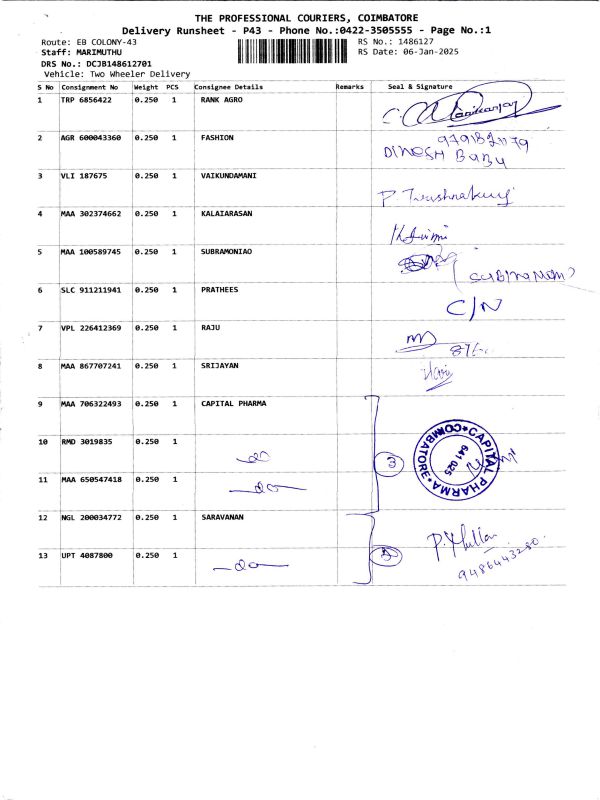 THE PROFESSIONAL COURIERS, COIMBATORE
Delivery Runsheet - P43 - Phone No.:0422-3505555 - Page No.:1
Route: EB COLONY-43 RS No.: 1486127
Staff: MARIMUTHU RS Date: 06-Jan-2025
DRS No.: DCJB148612701
Vehicle: Two Wheeler Delivery
S No Consignment No Weight PCS Consignee Details Remarks Seal & Signature
1 TRP 6856422 0.250 1 RANK AGRO
2 AGR 600043360 0.250 1 FASHION
DINESH BABU
3 VLI 187675 0.250 1 VAIKUNDAMANI
4 MAA 302374662 0.250 1 KALAIARASAN
5 MAA 100589745 0.250 1 SUBRAMONIAO
6 SLC 911211941 0.250 1 PRATHEES
C/N
7 VPL 226412369 0.250 1 RAJU
8 MAA 867707241 0.250 1 SRIJAYAN
9 MAA 706322493 0.250 1 CAPITAL PHARMA
10 RMD 3019835 0.250 1 do 3
CAPITAL PHARMA COIMBATORE 641 025
11 MAA 650547418 0.250 1 do
12 NGL 200034772 0.250 1 SARAVANAN
13 UPT 4087800 0.250 1 do
9486443280